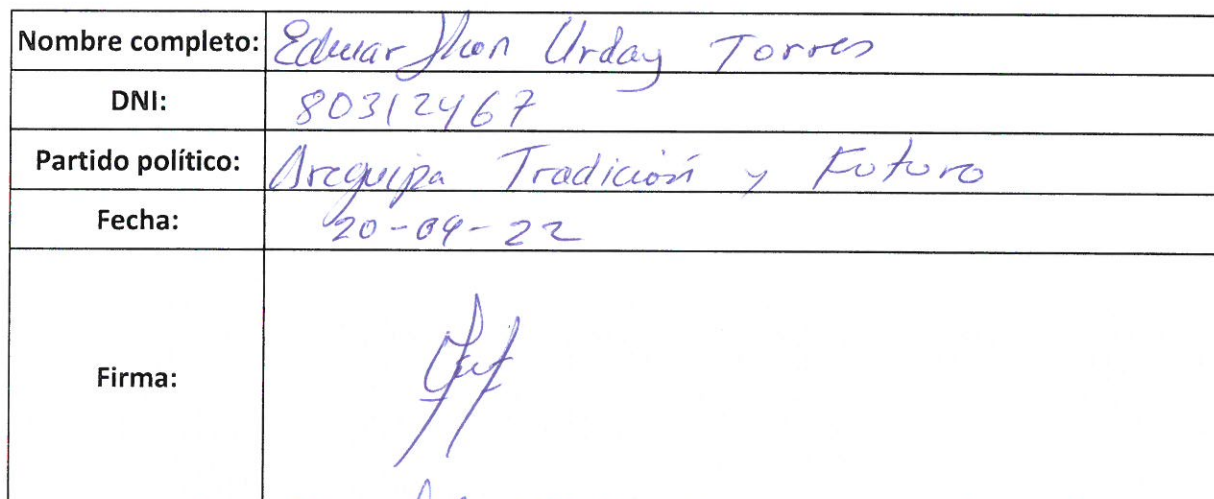 Nombre completo: Edwar Jhon Urday Torres
DNI: 80312467
Partido político: Arequipa Tradición y Futuro
Fecha: 20-09-22
Firma: